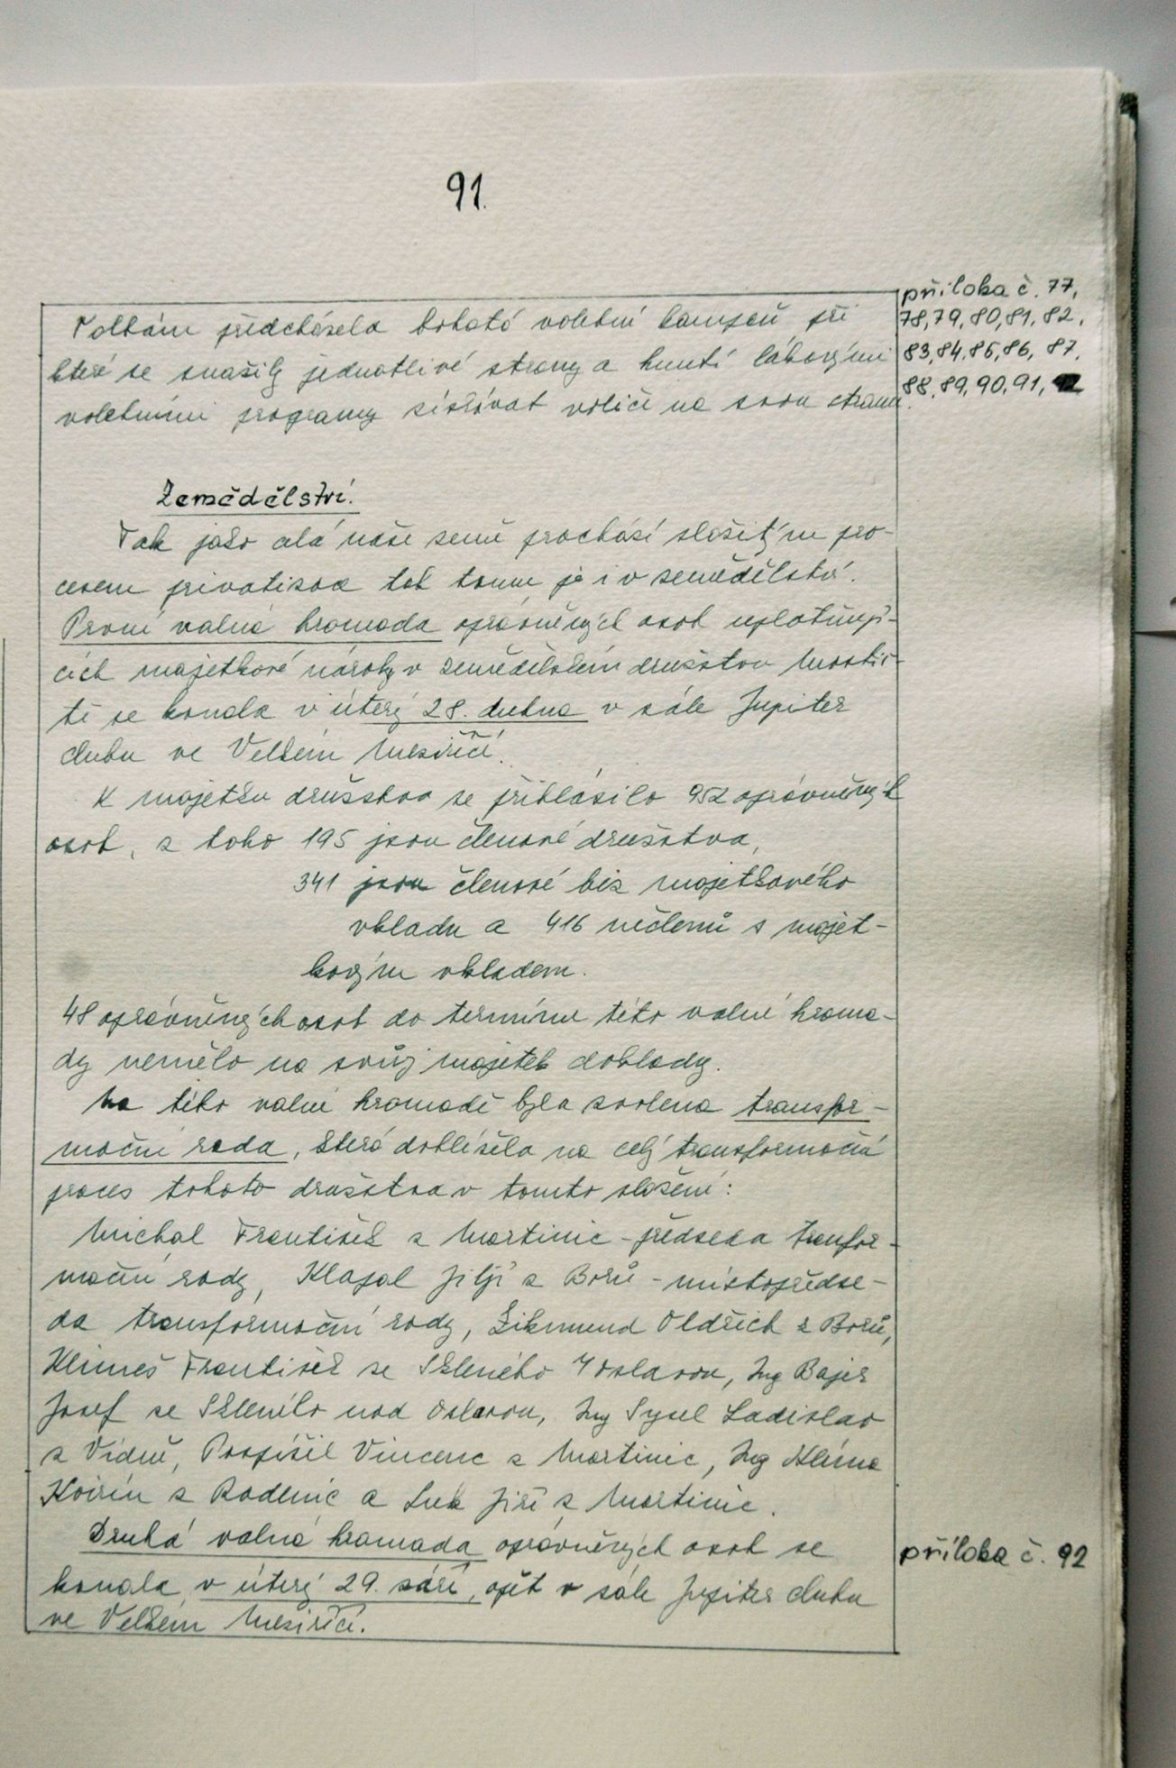 91.
příloha č. 77,
78, 79, 80, 81, 82,
83, 84, 85, 86, 87,
88, 89, 90, 91,
Volbám předcházela bohatá volební kampaň při
které se snažily jednotlivé strany a hnutí lákavými
volebními programy získávat voliče na svou stranu.
Zemědělství.
Tak jako celá naše země prochází složitým pro-
cesem privatizace tak tomu je i v zemědělství.
První valná hromada oprávněných osob uplatňují-
cích majetkové nároky v zemědělském družstvu Mostiš-
tě se konala v úterý 28. dubna v sále Jupiter
clubu ve Velkém Meziříčí.
K majetku družstva se přihlásilo 952 oprávněných
osob, z toho 195 jsou členové družstva,
341 jsou členové bez majetkového
vkladu a 416 nečlenů s majet-
kovým vkladem.
48 oprávněných osob do termínu této valné hroma-
dy nemělo na svůj majetek doklady.
Na této valné hromadě byla zvolena transfor-
mační rada, která dohlížela na celý transformační
proces tohoto družstva v tomto složení:
Michal František z Martinic - předseda transfor-
mační rady, Klapal Jiljí z Borů - místopředse-
da transformační rady, Zikmund Oldřich z Borů,
Klimeš František ze Skleného n/Oslavou, Ing Bajer
Josef ze Skleného nad Oslavou, Ing Sysel Ladislav
z Vídně, Pospíšil Vincenc z Martinic, Ing Klíma
z Radenic a Juk Jiří z Martinic.
Druhá valná hromada oprávněných osob se
konala v úterý 29. září, opět v sále Jupiter clubu
ve Velkém Meziříčí.
příloha č. 92